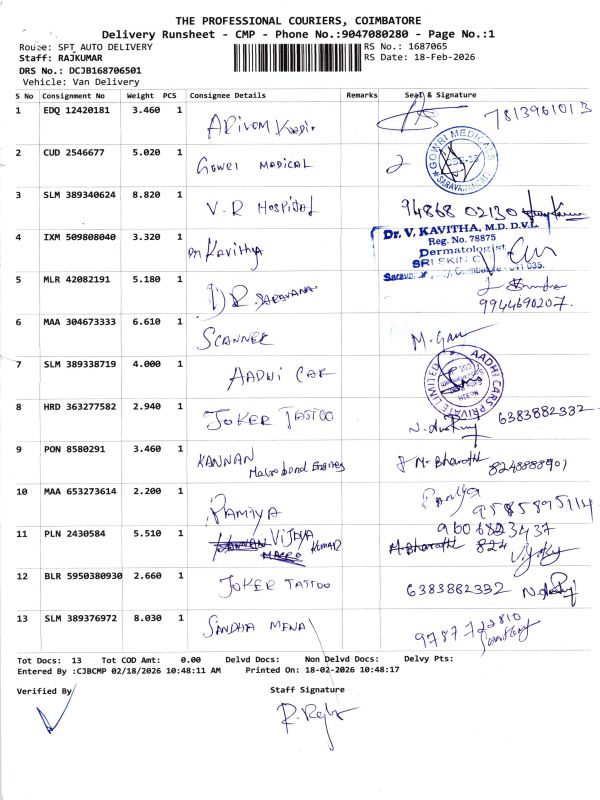 THE PROFESSIONAL COURIERS, COIMBATORE
Delivery Runsheet - CMP - Phone No.:9047080280 - Page No.:1
Route: SPT AUTO DELIVERY
RS No.: 1687065
Staff: RAJKUMAR
RS Date: 18-Feb-2026
DRS No.: DCJB168706501
Vehicle: Van Delivery
S No Consignment No Weight PCS Consignee Details Remarks Seal & Signature
1 EDQ 12420181 3.460 1 7813961013
2 CUD 2546677 5.020 1 Gowri MEDICAL 2 GOWRI MEDICALS
3 SLM 389340624 8.820 1 V.R HOSPITAL 94868 02130
4 IXM 509808040 3.320 1 Dr Kavitha Dr. V. KAVITHA, M.D. D.V.L.
Reg. No. 78875
Dermatologist
SRI SKIN
5 MLR 42082191 5.180 1 DR. SARAVANA 9944690207.
6 MAA 304673333 6.610 1 SCANNER
7 SLM 389338719 4.000 1 AADHI CAR AADHI CARS PRIVATE LIMITED
8 HRD 363277582 2.940 1 JOKER TATTOO 6383882332
9 PON 8580291 3.460 1 KANNAN M. Bharath 8248888901
10 MAA 653273614 2.200 1 RAMIYA 9585895114
11 PLN 2430584 5.510 1 VIJAYA KUMAR
12 BLR 5950380930 2.660 1 JOKER TATTOO 6383882332
13 SLM 389376972 8.030 1 SANDHA MENA
Tot Docs: 13 Tot COD Amt: 0.00 Delvd Docs: Non Delvd Docs: Delvy Pts:
Entered By :CJBCMP 02/18/2026 10:48:11 AM Printed On: 18-02-2026 10:48:17
Verified By Staff Signature